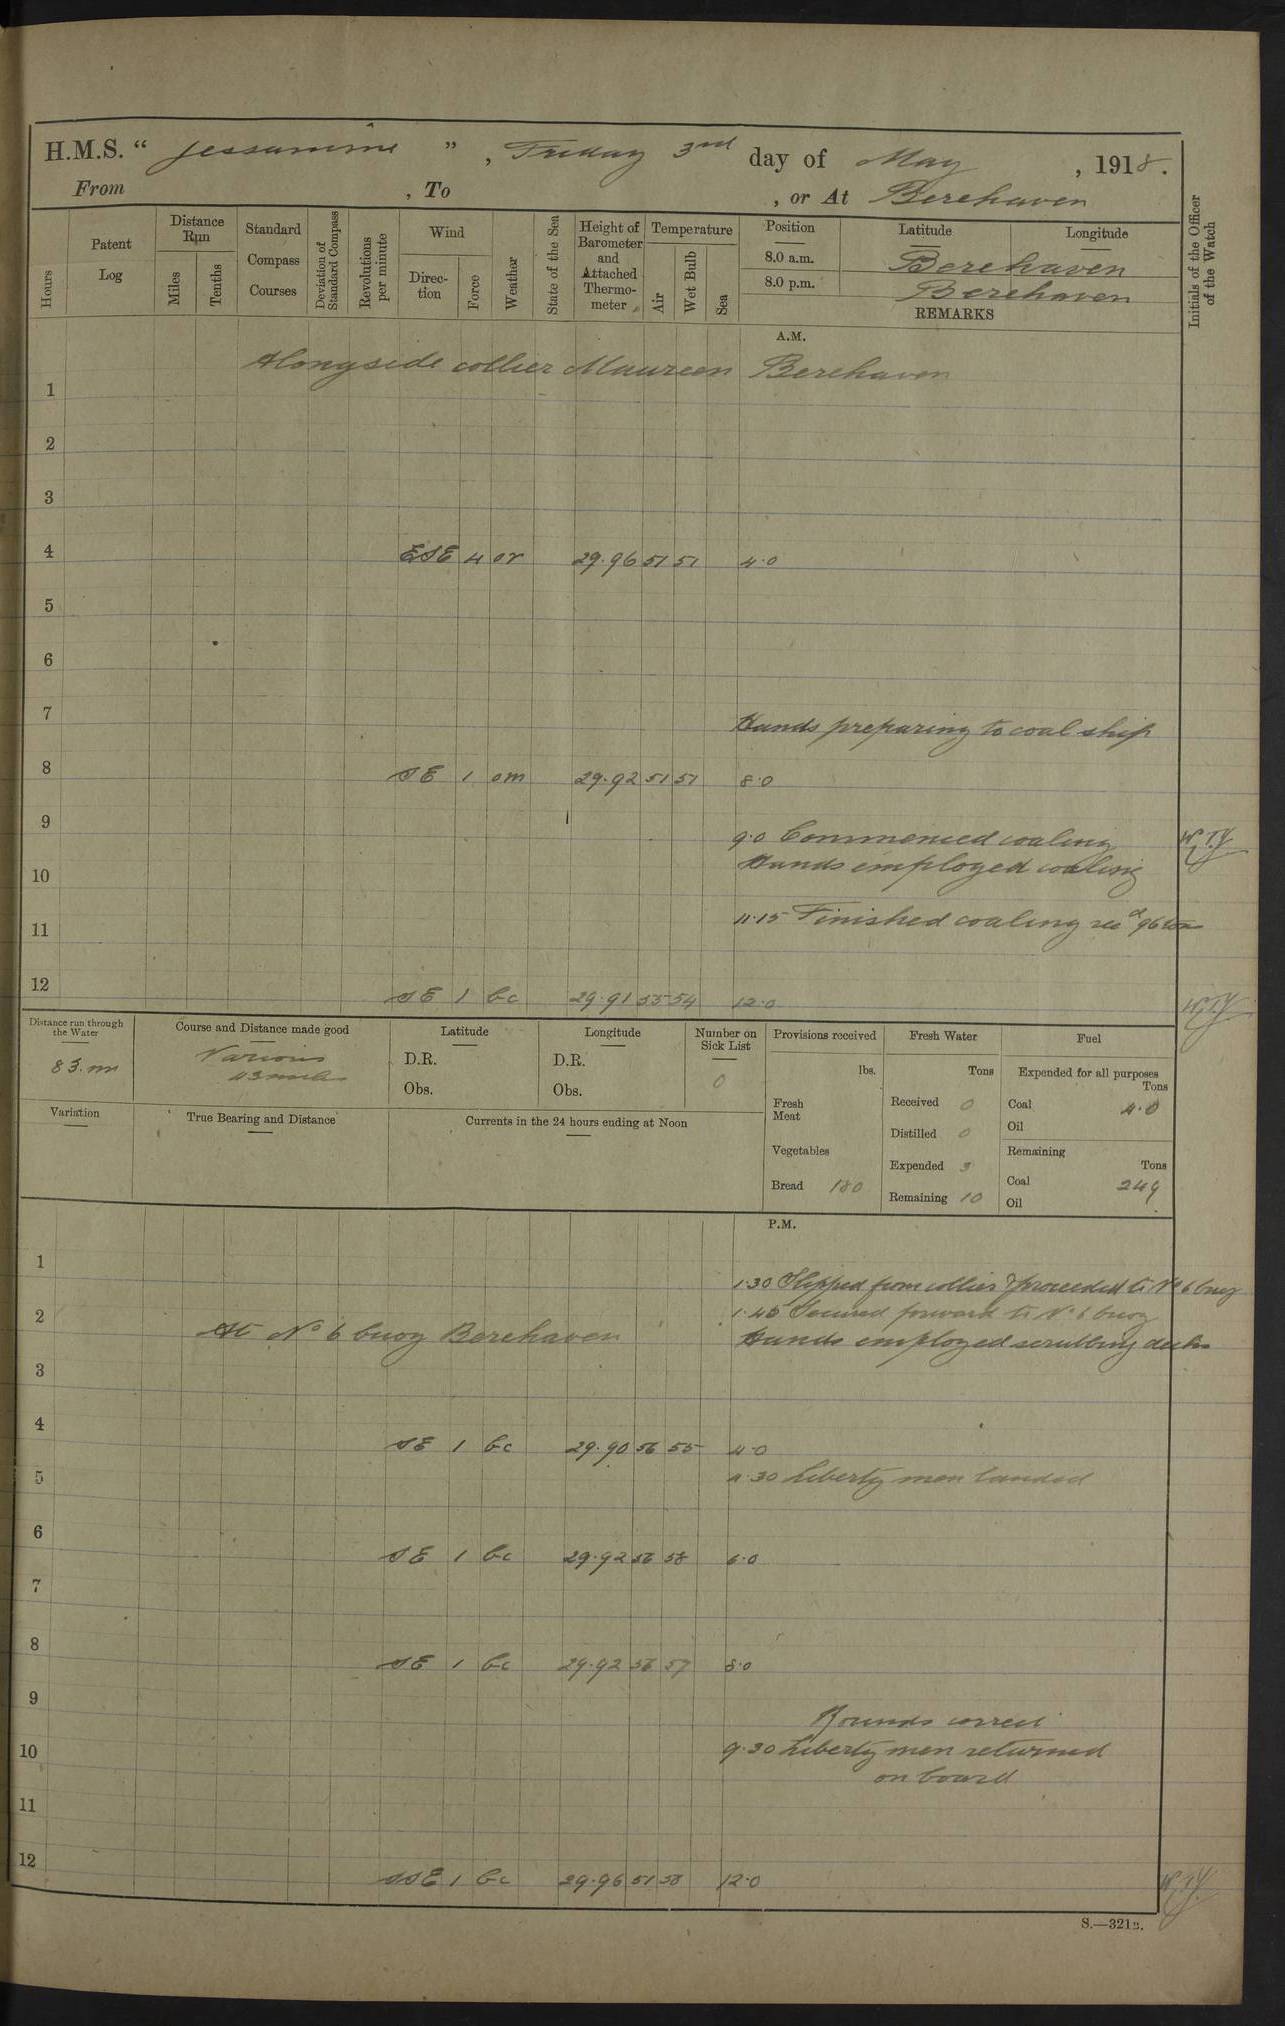 H.M.S. " Jessamine " , Friday 3rd day of May , 1918.
From , To , or At Berehaven
Hours
Patent Log
Distance Run
Miles
Tenths
Standard Compass Courses
Deviation of Standard Compass
Revolutions per minute
Wind
Direction
Force
Weather
State of the Sea
Height of Barometer and Attached Thermometer
Temperature
Air
Wet Bulb
Sea
Position Latitude Longitude
8.0 a.m. Berehaven
8.0 p.m. Berehaven
REMARKS
Initials of the Officer of the Watch
A.M.
Alongside collier Maureen Berehaven
1
2
3
4 ESE 4 or 29.96 51 51 4.0
5
6
7
Hands preparing to coal ship
8 SE 1 om 29.92 51 51 8.0
9
9.0 Commenced coaling W.T.Y
Hands employed coaling
10
11.15 Finished coaling recd 96 tons
11
12 SE 1 bc 29.91 55 54 12.0 W.T.Y
Distance run through the Water
83.m
Course and Distance made good
Various
Latitude
D.R.
Obs.
Longitude
D.R.
Obs.
Number on Sick List
0
Variation
True Bearing and Distance
Currents in the 24 hours ending at Noon
Provisions received
lbs.
Fresh Meat
Vegetables
Bread 180
Fresh Water
Tons
Received 0
Distilled 0
Expended 3
Remaining 10
Fuel
Expended for all purposes
Tons
Coal 4.0
Oil
Remaining
Tons
Coal 249
Oil
P.M.
1
1.30 Slipped from collier & proceeded to No 6 buoy
2 1.45 Secured forward to No 6 buoy
At No 6 buoy Berehaven Hands employed scrubbing decks
3
4 SE 1 bc 29.90 56 55 4.0
5 4.30 Liberty men landed
6 SE 1 bc 29.92 56 58 6.0
7
8 SE 1 bc 29.92 56 57 8.0
9
Rounds correct
10 9.30 Liberty men returned
on board
11
12 SSE 1 bc 29.96 51 58 12.0 W.T.Y
S.—321B.